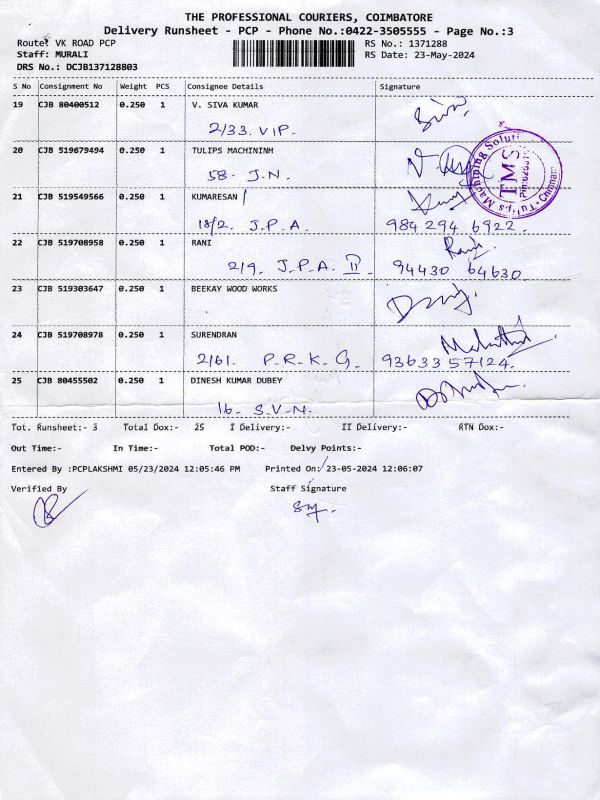 THE PROFESSIONAL COURIERS, COIMBATORE
Delivery Runsheet - PCP - Phone No.:0422-3505555 - Page No.:3
Route: VK ROAD PCP RS No.: 1371288
Staff: MURALI RS Date: 23-May-2024
DRS No.: DCJB137128803
S No Consignment No Weight PCS Consignee Details Signature
19 CJB 80400512 0.250 1 V. SIVA KUMAR
2/33. VIP.
20 CJB 519679494 0.250 1 TULIPS MACHININH
58. J.N.
TMS
21 CJB 519549566 0.250 1 KUMARESAN
18/2. J.P.A. 984 294 6922.
22 CJB 519708958 0.250 1 RANI Rani
2/9. J.P.A. II. 94430 64630.
23 CJB 519303647 0.250 1 BEEKAY WOOD WORKS
24 CJB 519708978 0.250 1 SURENDRAN
2/61. P.R.K.G. 93633 57124.
25 CJB 80455502 0.250 1 DINESH KUMAR DUBEY
16. S.V.N.
Tot. Runsheet:- 3 Total Dox:- 25 I Delivery:- II Delivery:- RTN Dox:-
Out Time:- In Time:- Total POD:- Delvy Points:-
Entered By :PCPLAKSHMI 05/23/2024 12:05:46 PM Printed On: 23-05-2024 12:06:07
Verified By Staff Signature